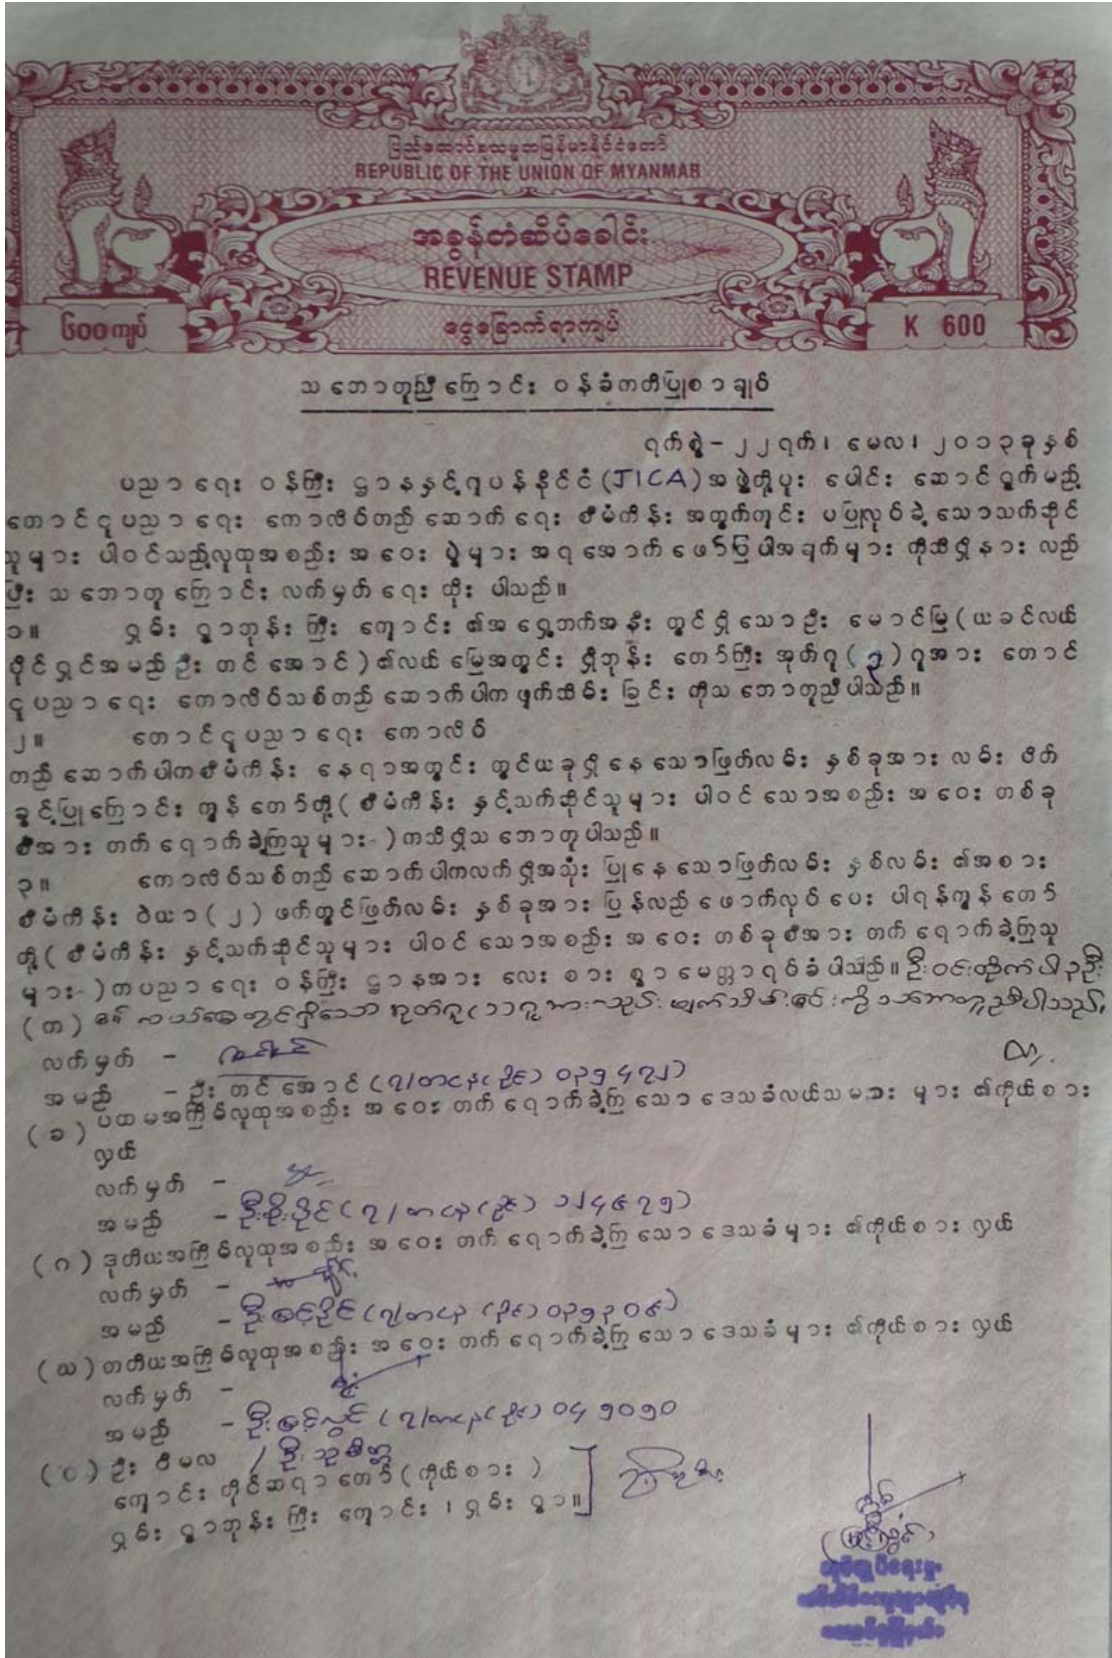 ပြည်ထောင်စုသမ္မတမြန်မာနိုင်ငံတော်
REPUBLIC OF THE UNION OF MYANMAR
အခွန်တံဆိပ်ခေါင်း
REVENUE STAMP
၆၀၀ကျပ် ငွေခြောက်ရာကျပ် K 600
သဘောတူညီကြောင်း ဝန်ခံကတိပြုစာချုပ်
ရက်စွဲ-၂၂ရက်၊ မေလ၊ ၂၀၁၃ခုနှစ်
ပညာရေး ဝန်ကြီး ဌာနနှင့်ဂျပန်နိုင်ငံ(JICA)အဖွဲ့တို့ပူး ပေါင်း ဆောင်ရွက်မည့်
တောင်ငူပညာရေး ကောလိပ်တည်ဆောက်ရေး စီမံကိန်း အတွက်ကွင်း ပပြုလုပ်ခဲ့သောသက်ဆိုင်
သူများ ပါဝင်သည့်လူထုအစည်း အဝေး ပွဲများ အရအောက်ဖော်ပြပါအချက်များ ကိုသိရှိနား လည်
ပြီး သဘောတူကြောင်း လက်မှတ်ရေး ထိုး ပါသည်။
၁။ ရှမ်း ရွာဘုန်း ကြီး ကျောင်း ၏အရှေ့ဘက်အနီး တွင်ရှိသောဦး မောင်မြ(ယခင်လယ်
ပိုင်ရှင်အမည်ဦး တင်အောင်)၏လယ်မြေအတွင်း ရှိဘုန်း တော်ကြီး အုတ်ဂူ(၃)ဂူအား တောင်
ငူပညာရေး ကောလိပ်သစ်တည်ဆောက်ပါကဖျက်သိမ်း ခြင်း ကိုသဘောတူညီပါသည်။
၂။ တောင်ငူပညာရေး ကောလိပ်
တည်ဆောက်ပါကစီမံကိန်း နေရာအတွင်း တွင်ယခုရှိနေသောဖြတ်လမ်း နှစ်ခုအား လမ်း ပိတ်
ခွင့်ပြုကြောင်း ကျွန်တော်တို့(စီမံကိန်း နှင့်သက်ဆိုင်သူများ ပါဝင်သောအစည်း အဝေး တစ်ခု
စီအား တက်ရောက်ခဲ့ကြသူများ )ကသိရှိသဘောတူပါသည်။
၃။ ကောလိပ်သစ်တည်ဆောက်ပါကလက်ရှိအသုံး ပြုနေသောဖြတ်လမ်း နှစ်လမ်း ၏အစား
စီမံကိန်း ဝဲယာ(၂)ဖက်တွင်ဖြတ်လမ်း နှစ်ခုအား ပြန်လည်ဖောက်လုပ်ပေး ပါရန်ကျွန်တော်
တို့(စီမံကိန်း နှင့်သက်ဆိုင်သူများ ပါဝင်သောအစည်း အဝေး တစ်ခုစီအား တက်ရောက်ခဲ့ကြသူ
များ )ကပညာရေး ဝန်ကြီး ဌာနအား လေး စား စွာမေတ္တာရပ်ခံပါသည်။
(က) တွင်ရှိသော အုတ်ဂူ ကို သဘောတူညီပါသည်
လက်မှတ် -
အမည် - ဦး တင်အောင်
(ခ) ပထမအကြိမ်လူထုအစည်း အဝေး တက်ရောက်ခဲ့ကြသောဒေသခံလယ်သမား များ ၏ကိုယ်စား
လှယ်
လက်မှတ် -
အမည် - ဦးစိုးပိုင်
(ဂ) ဒုတိယအကြိမ်လူထုအစည်း အဝေး တက်ရောက်ခဲ့ကြသောဒေသခံများ ၏ကိုယ်စား လှယ်
လက်မှတ် -
အမည် -
(ဃ) တတိယအကြိမ်လူထုအစည်း အဝေး တက်ရောက်ခဲ့ကြသောဒေသခံများ ၏ကိုယ်စား လှယ်
လက်မှတ် -
အမည် -
(င) ဦး ဝိမလ /
ကျောင်း ထိုင်ဆရာတော်(ကိုယ်စား )
ရှမ်း ရွာဘုန်း ကြီး ကျောင်း ၊ ရှမ်း ရွာ။